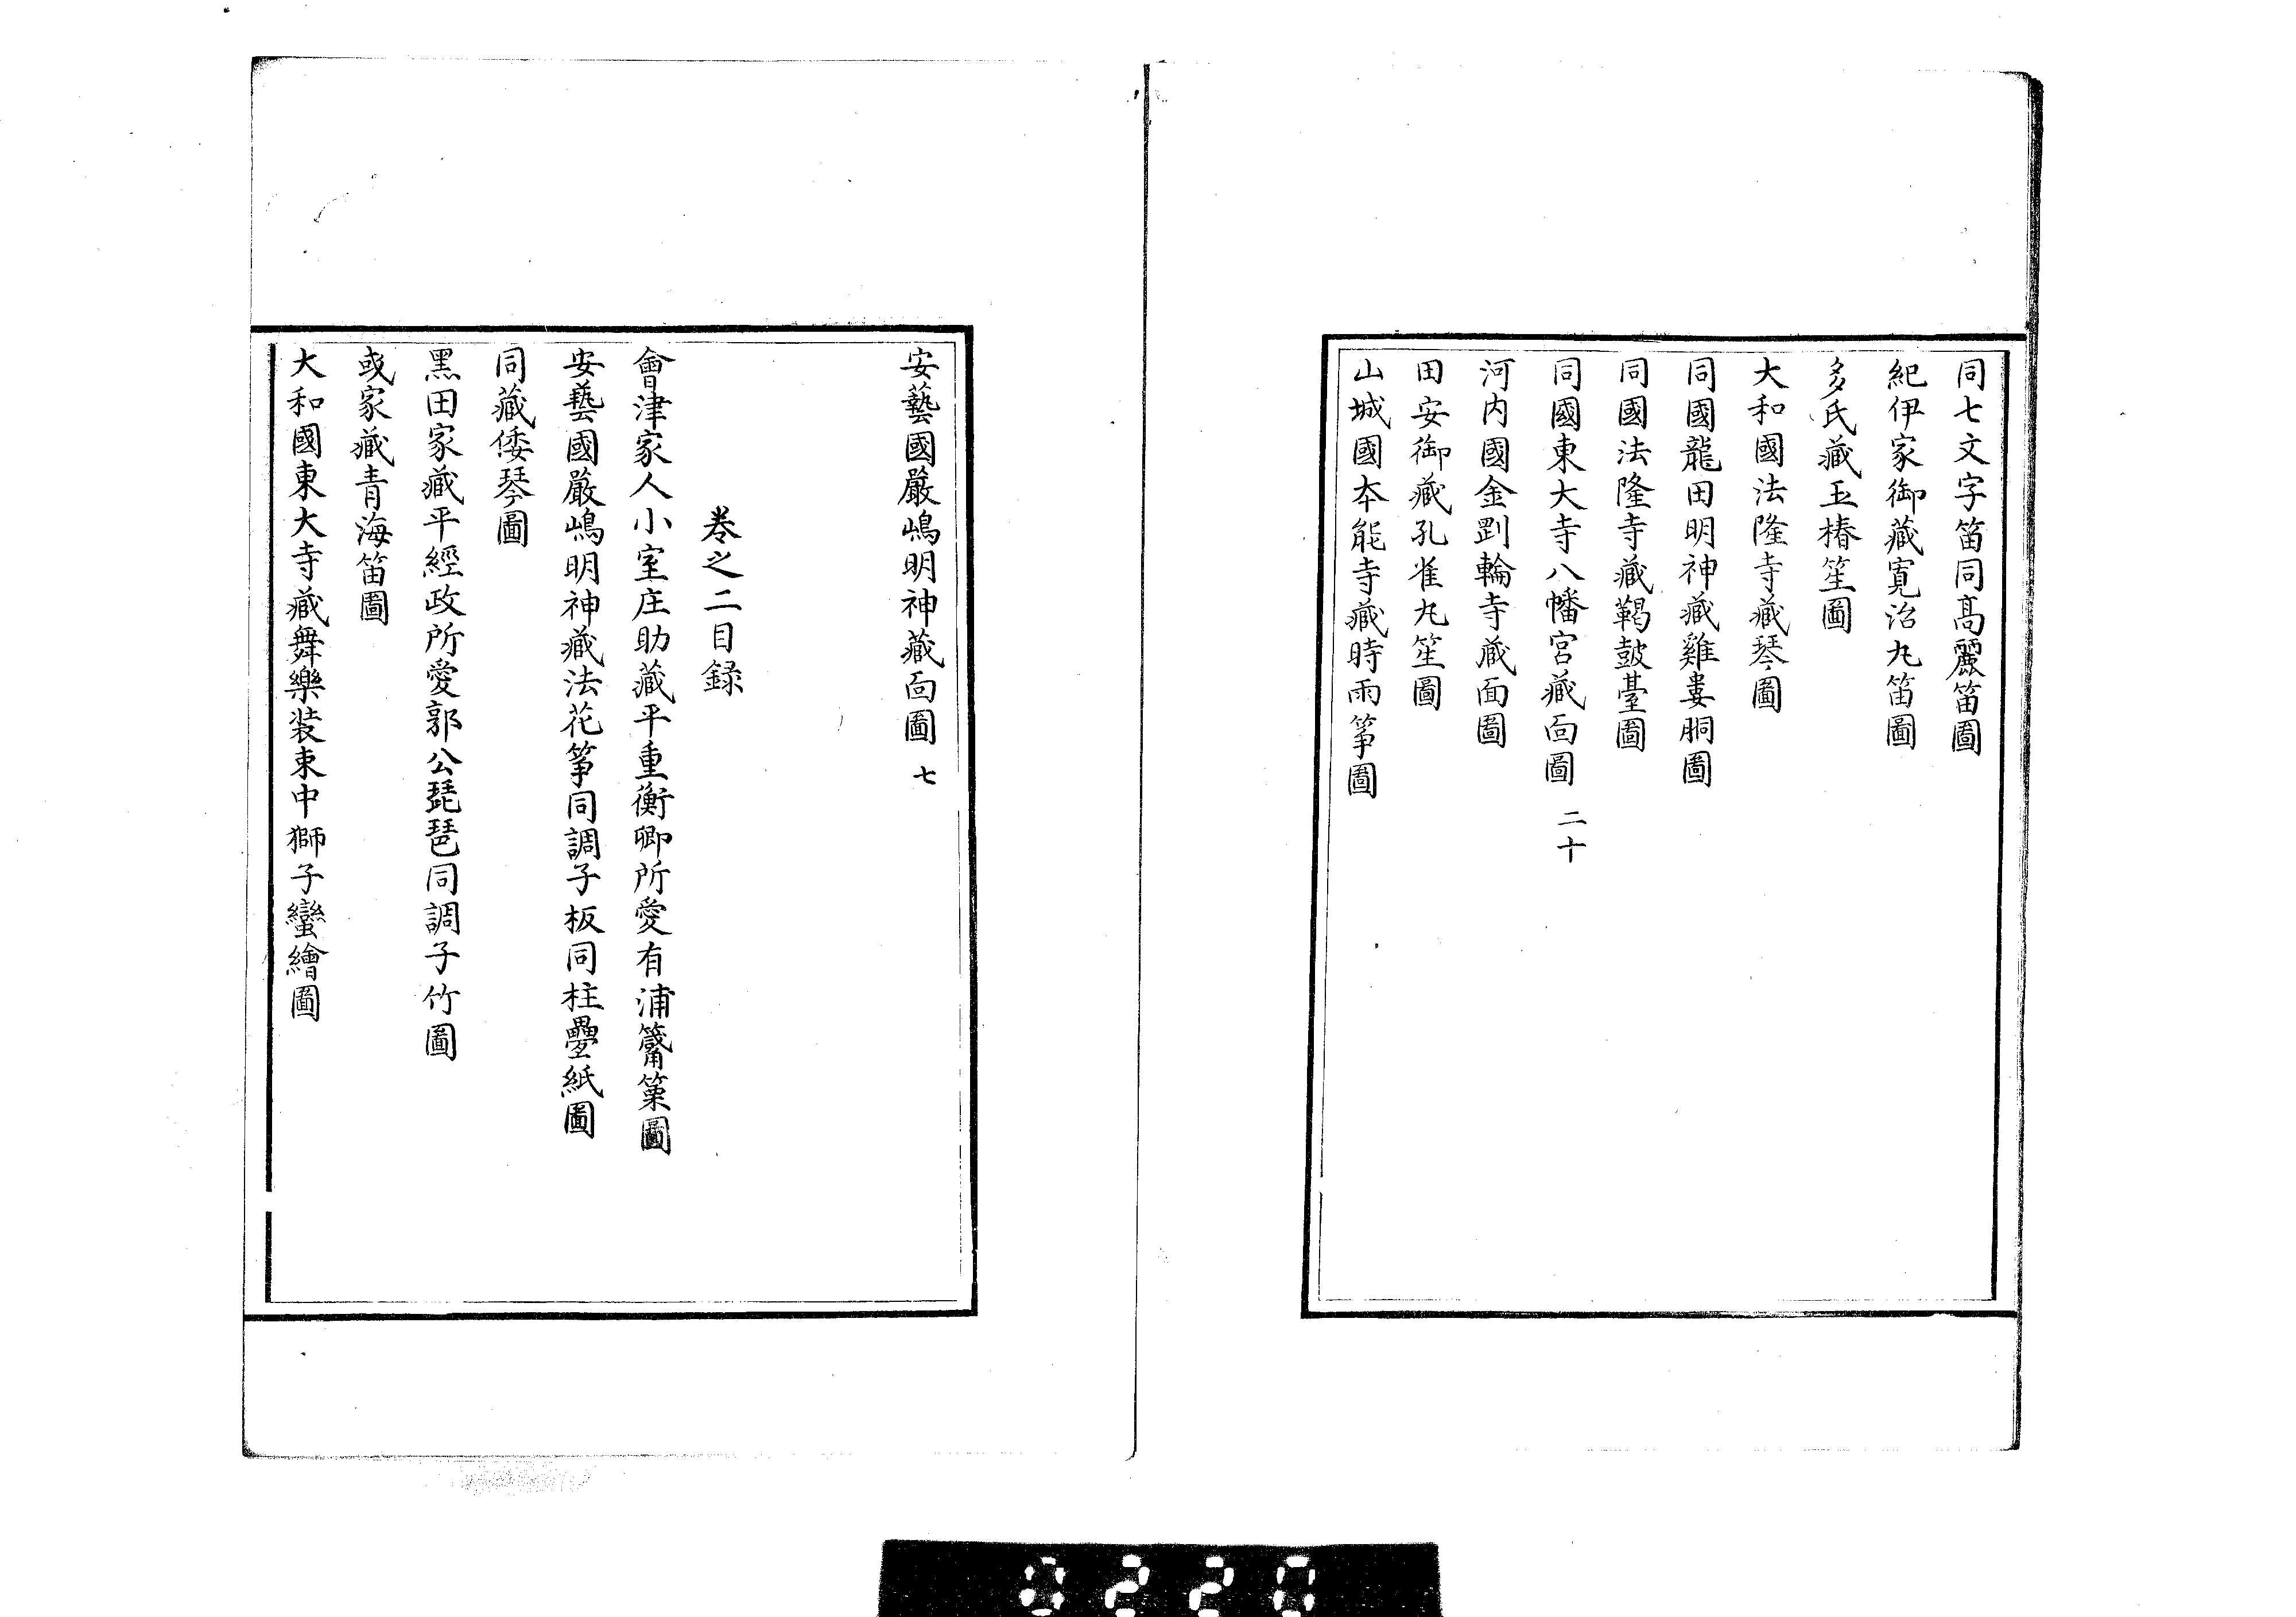 同七文字笛同髙麗笛圖
紀伊家御藏寛治丸笛圖
多氏藏玉椿笙圖
大和國法隆寺藏琴圖
同國龍田明神藏雞婁胴圖
同國法隆寺藏鞨鼓臺圖
同國東大寺八幡宮藏面圖 二十
河内國金剛輪寺藏面圖
田安御藏孔雀丸笙圖
山城國本能寺藏時雨箏圖
安藝國嚴嶋明神藏面圖 七
卷之二目録
會津家人小室庄助藏平重衡卿所愛有浦篳篥圖
安藝國嚴嶋明神藏法花箏同調子板同柱疊紙圖
同藏倭琴圖
黒田家藏平經政所愛郭公琵琶同調子竹圖
或家藏青海笛圖
大和國東大寺藏舞樂装束中獅子蠻繪圖
0220